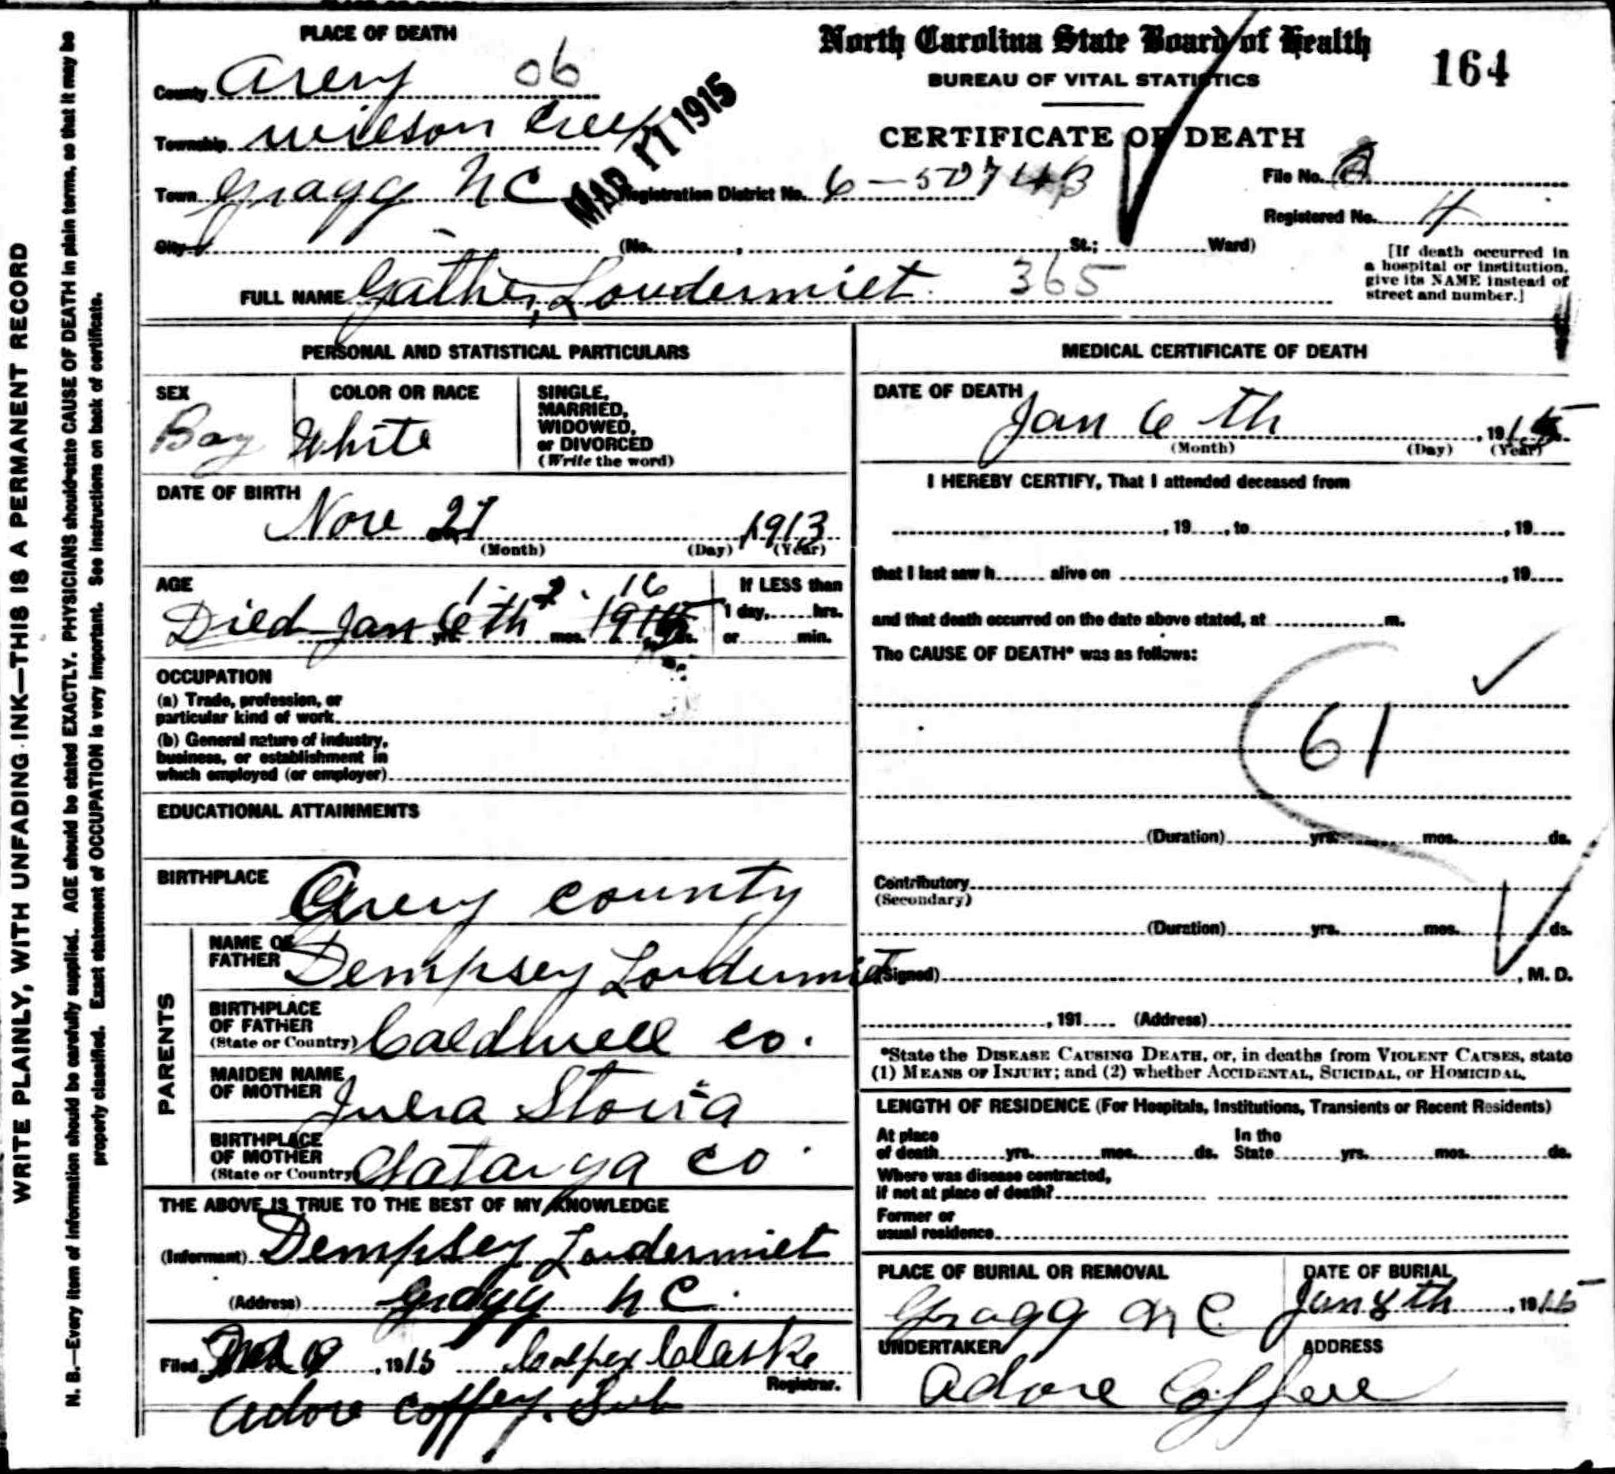 PLACE OF DEATH
County Avery 06
Township Wilson Creek
Town Gragg NC
City (No. , St.; Ward)
MAR 11 1915
North Carolina State Board of Health
BUREAU OF VITAL STATISTICS
164
CERTIFICATE OF DEATH
Registration District No. 6-507
File No.
Registered No. 4
[If death occurred in
a hospital or institution,
give its NAME instead of
street and number.]
FULL NAME Gather Loudermilt 365
PERSONAL AND STATISTICAL PARTICULARS
SEX
Boy
COLOR OR RACE
White
SINGLE,
MARRIED,
WIDOWED,
or DIVORCED
(Write the word)
DATE OF BIRTH
Nov 27 1913
(Month) (Day) (Year)
AGE
1 2 16
Died Jan 6th
yrs. mos. ds.
If LESS than
1 day, hrs.
or min.
OCCUPATION
(a) Trade, profession, or
particular kind of work
(b) General nature of industry,
business, or establishment in
which employed (or employer)
EDUCATIONAL ATTAINMENTS
BIRTHPLACE Avery county
PARENTS
NAME OF
FATHER Dempsey Loudermilt
BIRTHPLACE
OF FATHER
(State or Country) Caldwell co.
MAIDEN NAME
OF MOTHER Julia
BIRTHPLACE
OF MOTHER
(State or Country) co
THE ABOVE IS TRUE TO THE BEST OF MY KNOWLEDGE
(Informant) Dempsey Loudermilt
(Address) Gragg NC.
Filed , 1915 Clarke
Registrar.
Adore Coffey. Sub
MEDICAL CERTIFICATE OF DEATH
DATE OF DEATH
Jan 6 th , 1915
(Month) (Day) (Year)
I HEREBY CERTIFY, That I attended deceased from
, 19 , to , 19
that I last saw h alive on , 19
and that death occurred on the date above stated, at m.
The CAUSE OF DEATH* was as follows:
61
(Duration) yrs. mos. ds.
Contributory
(Secondary)
(Duration) yrs. mos. ds.
(Signed) , M. D.
, 191 (Address)
*State the DISEASE CAUSING DEATH, or, in deaths from VIOLENT CAUSES, state
(1) MEANS OF INJURY; and (2) whether ACCIDENTAL, SUICIDAL, or HOMICIDAL.
LENGTH OF RESIDENCE (For Hospitals, Institutions, Transients or Recent Residents)
At place
of death yrs. mos. ds.
In the
State yrs. mos. ds.
Where was disease contracted,
if not at place of death?
Former or
usual residence
PLACE OF BURIAL OR REMOVAL
Gragg N C
DATE OF BURIAL
Jan 8th , 1915
UNDERTAKER
Adore Coffee
ADDRESS
WRITE PLAINLY, WITH UNFADING INK—THIS IS A PERMANENT RECORD
N. B.—Every item of information should be carefully supplied. AGE should be stated EXACTLY. PHYSICIANS should state CAUSE OF DEATH in plain terms, so that it may be
properly classified. Exact statement of OCCUPATION is very important. See instructions on back of certificate.